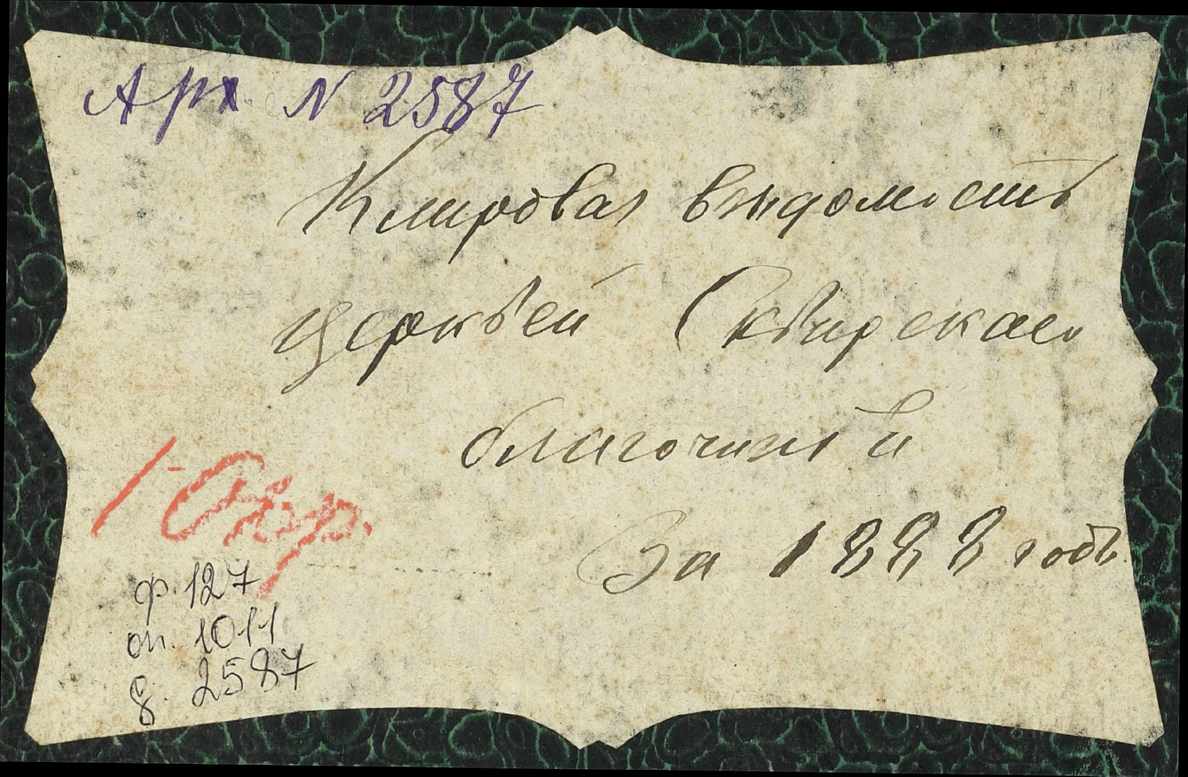 Арх N 2587
Клировая вѣдомость
церквей Сквирскаго
благочинія
За 1888 годъ
1 Сквр.
ф. 127
оп. 1011
д. 2587